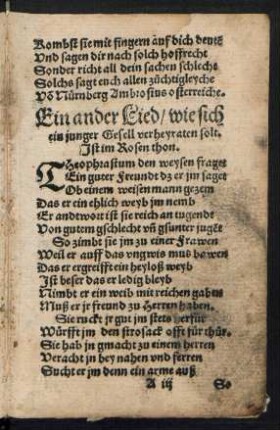 Kombst sie mit fingern auff dich deutē
Vnd sagen dir nach solch hoffrecht
Sonder richt all dein sachen schlecht
Solchs sagt euch allen züchtigleyche
Vō Nürnberg Ambrosius osterreiche.
Ein ander Lied / wie sich
ein junger Gesell verheyraten solt.
Ist im Rosen thon.
THeophrastum den weysen fraget
Ein guter Freundt dz er jm saget
Ob einem weisen mann gezem
Das er ein ehlich weyb jm nemb
Er andtwort ist sie reich an tugendt
Von gutem gschlecht vn̄ gsunter jugēt
So zimbt sie jm zu einer Frawen
Weil er auff das vngwis mus bawen
Das er ergreifft ein heyloß weyb
Ist beser das er ledig bleyb
Nimbt er ein weib mit reichen gaben
Muß er jr freund zu Herren haben.
Sie ruckt jr gut jm stets verfür
Würfft jm den strosack offt für thür.
Sie hab jn gmacht zu einem herren
Veracht jn bey nahen vnd ferren
Sucht er jm denn ein arme auß
A iij So